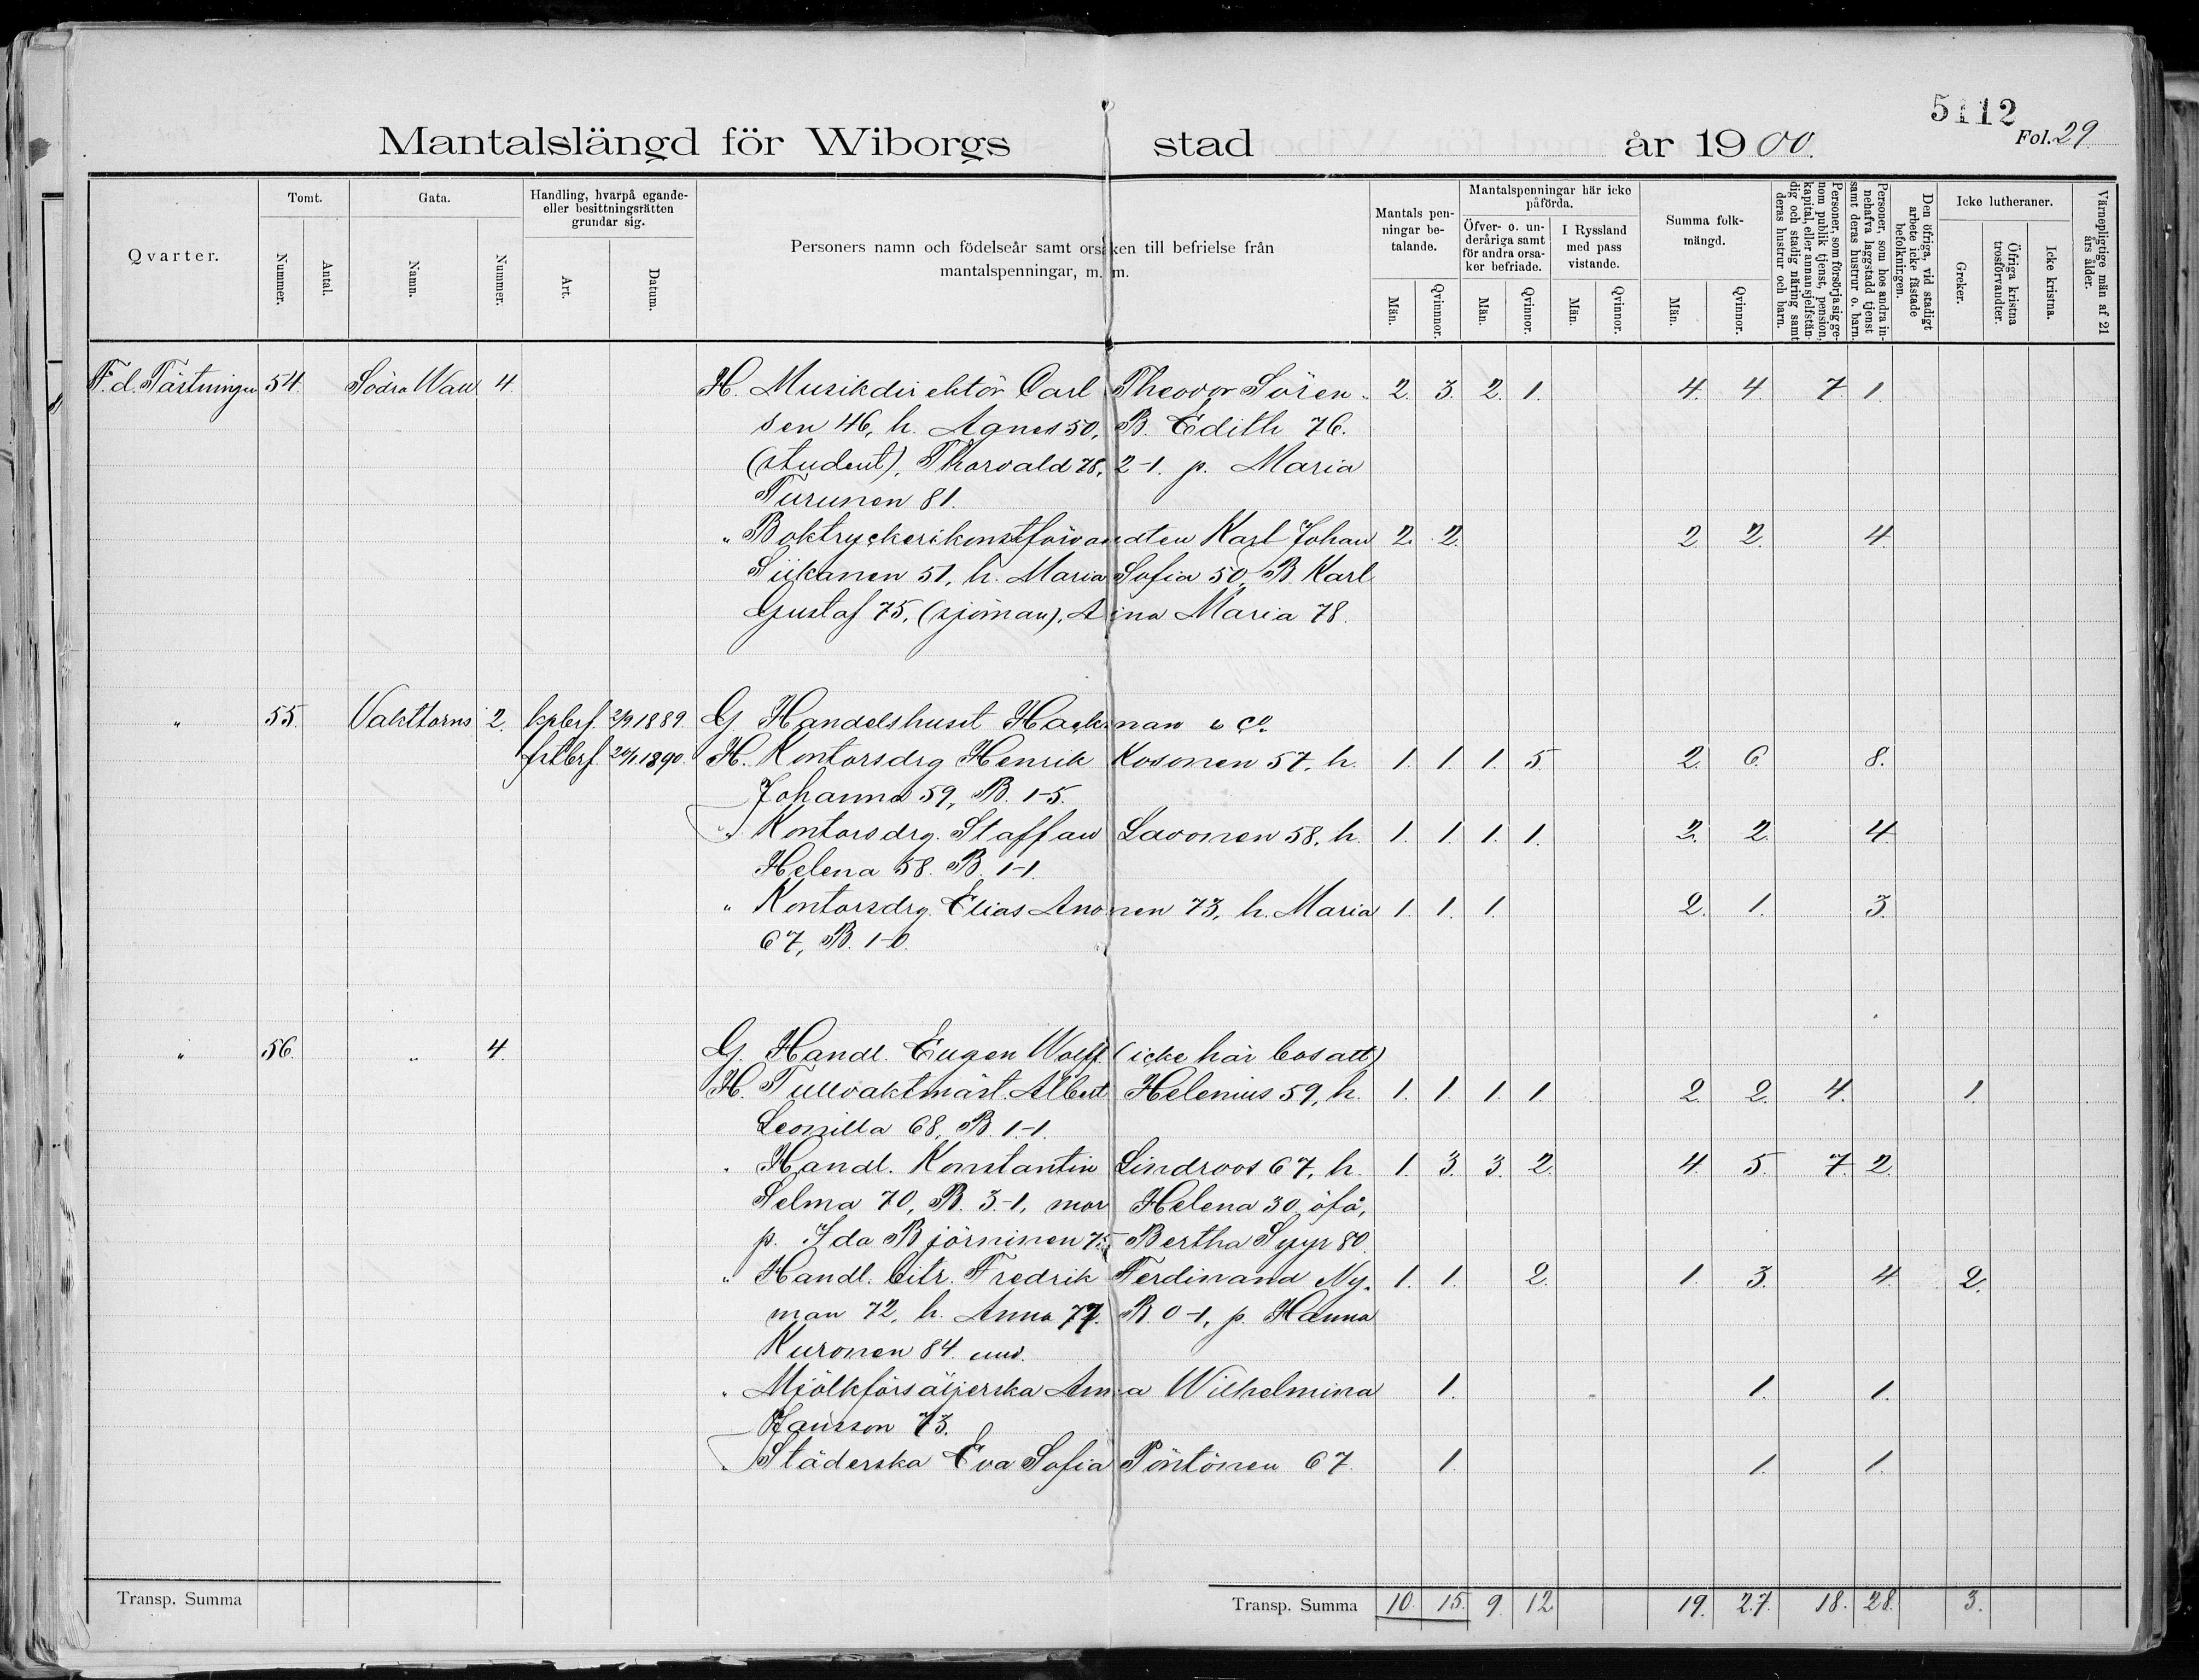 5112
Mantalslängd för Wiborgs stad år 1900. Fol. 29
Qvarter.
Tomt.
Nummer.
Antal.
Gata.
Namn.
Numer.
Handling, hvarpå egande- eller besittningsrätten grundar sig.
Art.
Datum.
Personers namn och födelseår samt orsaken till befrielse från mantalspenningar, m. m.
Mantals penningar betalande.
Män.
Qvinnor.
Mantalspenningar här icke påförda.
Öfver- o. underåriga samt för andra orsaker befriade.
Män.
Qvinnor.
I Ryssland med pass vistande.
Män.
Qvinnor.
Summa folkmängd.
Män.
Qvinnor.
Personer, som försörja sig genom publik tjenst, pension, kapital, eller annan sjelfständig och stadig näring samt deras hustrur och barn.
Personer, som hos andra innehafva laggstadd tjenst samt deras hustrur o. barn.
Den öfriga, vid stadigt arbete icke fästade befolkningen.
Icke lutheraner.
Greker.
Öfriga kristna trosförvandter.
Icke kristna.
Värnepligtige män af 21 års ålder.
F.d. Fästningen 54. Södra Wall 4. H. Musikdirektör Carl Theodor Sören- 2. 3. 2. 1. 4. 4. 7. 1.
sen 46, h. Agnes 50, B. Edith 76.
(student), Thorvald 78, 2-1. p. Maria
Turunen 81.
" Boktryckerikonstförvandten Karl Johan 2. 2. 2. 2. 4.
Siikanen 51, h. Maria Sofia 50, B Karl
Gustaf 75, (sjöman), Aina Maria 78.
" 55. Vakttorns 2. kpbrf. 2/9 1889. G Handelshuset Hackman & Co.
fstbrf. 20/1 1890. H. Kontorsdrg Henrik Kosonen 57, h. 1. 1. 1. 5. 2. 6. 8.
Johanna 59, B. 1-5.
" Kontorsdrg. Staffan Savonen 58, h. 1. 1. 1. 1. 2. 2. 4.
Helena 58. B. 1-1.
" Kontorsdrg. Elias Anonen 73, h. Maria 1. 1. 1. 2. 1. 3.
67, B. 1-0.
" 56. " 4. G. Handl. Eugen Wolff (icke här bosatt)
H. Tullvaktmäst. Albert Helenius 59, h. 1. 1. 1. 1. 2. 2. 4. 1.
Leonilla 68, B. 1-1.
" Handl. Konstantin Lindroos 67, h. 1. 3. 3. 2. 4. 5. 7. 2.
Selma 70, B. 3-1, mor Helena 30 öfå,
p. Ida Björninen 75, Bertha Syyr 80.
" Handl. bitr. Fredrik Ferdinand Ny- 1. 1. 2. 1. 3. 4. 2.
man 72, h. Anna 77. B. 0-1, p. Hanna
Kuronen 84. und.
" Mjölkförsäljerska Anna Wilhelmina 1. 1. 1.
Hansson 73.
" Städerska Eva Sofia Pöntönen 67. 1. 1. 1.
Transp. Summa Transp. Summa 10. 15. 9. 12 19. 27. 18. 28. 3.